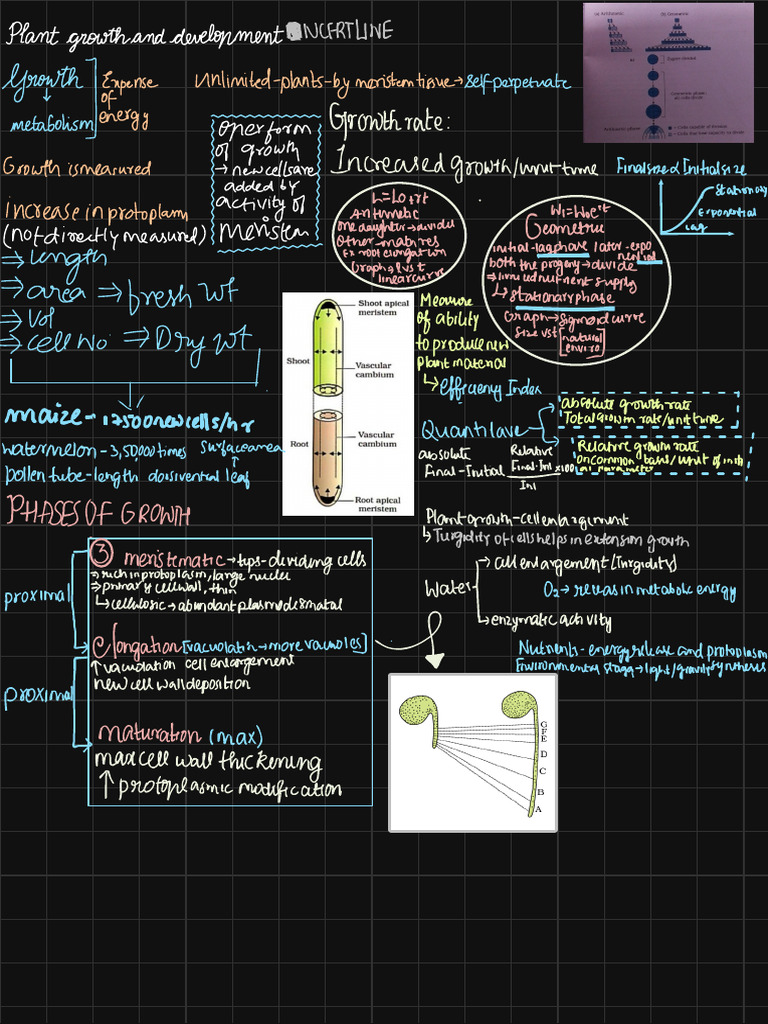 Plant growth and development NCERT LINE
Growth
↓
metabolism
Expense
of
energy
Unlimited-plants-by meristem tissue→self perpetuate
Growth is measured
increase in protoplasm
(not directly measured)
⇒ length
⇒ area ⇒ fresh wt
⇒ Vol
⇒ cell No ⇒ Dry wt
open form
of growth
→ new cells are
added by
activity of
meristem
Growth rate:
Increased growth/unit time
L=L0+rt
Arithmetic
One daughter→divides
Other-matures
Ex root elongation
Graph→l vs t
linear curve
W1=W0e^rt
Geometric
initial-lag phase later-expo
nential
both the progeny→divide
⇒limited nutrient supply
↳ stationary phase
Graph→sigmoid curve
size vs t
natural
enviro
(a) Arithmetic
(b) Geometric
Final size of Initial size
Stationary
Exponential
Lag
maize- 17500 new cells/hr
watermelon-3,50,000 times
Surface area
↑
pollen tube-length dorsiventral leaf
Shoot apical
meristem
Shoot
Vascular
cambium
Root
Vascular
cambium
Root apical
meristem
Measure
of ability
to produce new
plant material
↳ efficiency Index
Quantitave
absolute growth rate
Total growth rate/unit time
Relative growth rate
on common basis/unit of initi
al parameter
absolute
Final-Initial
Relative
Final-Ini x100
Ini
PHASES OF GROWTH
proximal
proximal
③ meristematic→tips-dividing cells
→ rich in protoplasm, large nuclei
⇒ primary cell wall, thin
↳ cellulosic→abundant plasmodesmatal
elongation [vacuolatin→more vacuoles]
↑ vacuolation cell enlargement
new cell wall deposition
maturation (max)
max cell wall thickening
↑ protoplasmic modification
Plant growth-cell enlargment
↳ Turgidity of cells helps in extension growth
Water
→ cell enlargement (Turgidity)
O2→ releas in metabolic energy
→ enzymatic activity
Nutrients-energy release and protoplasm
synthesis
Environmental →light/gravity
G
F
E
D
C
B
A